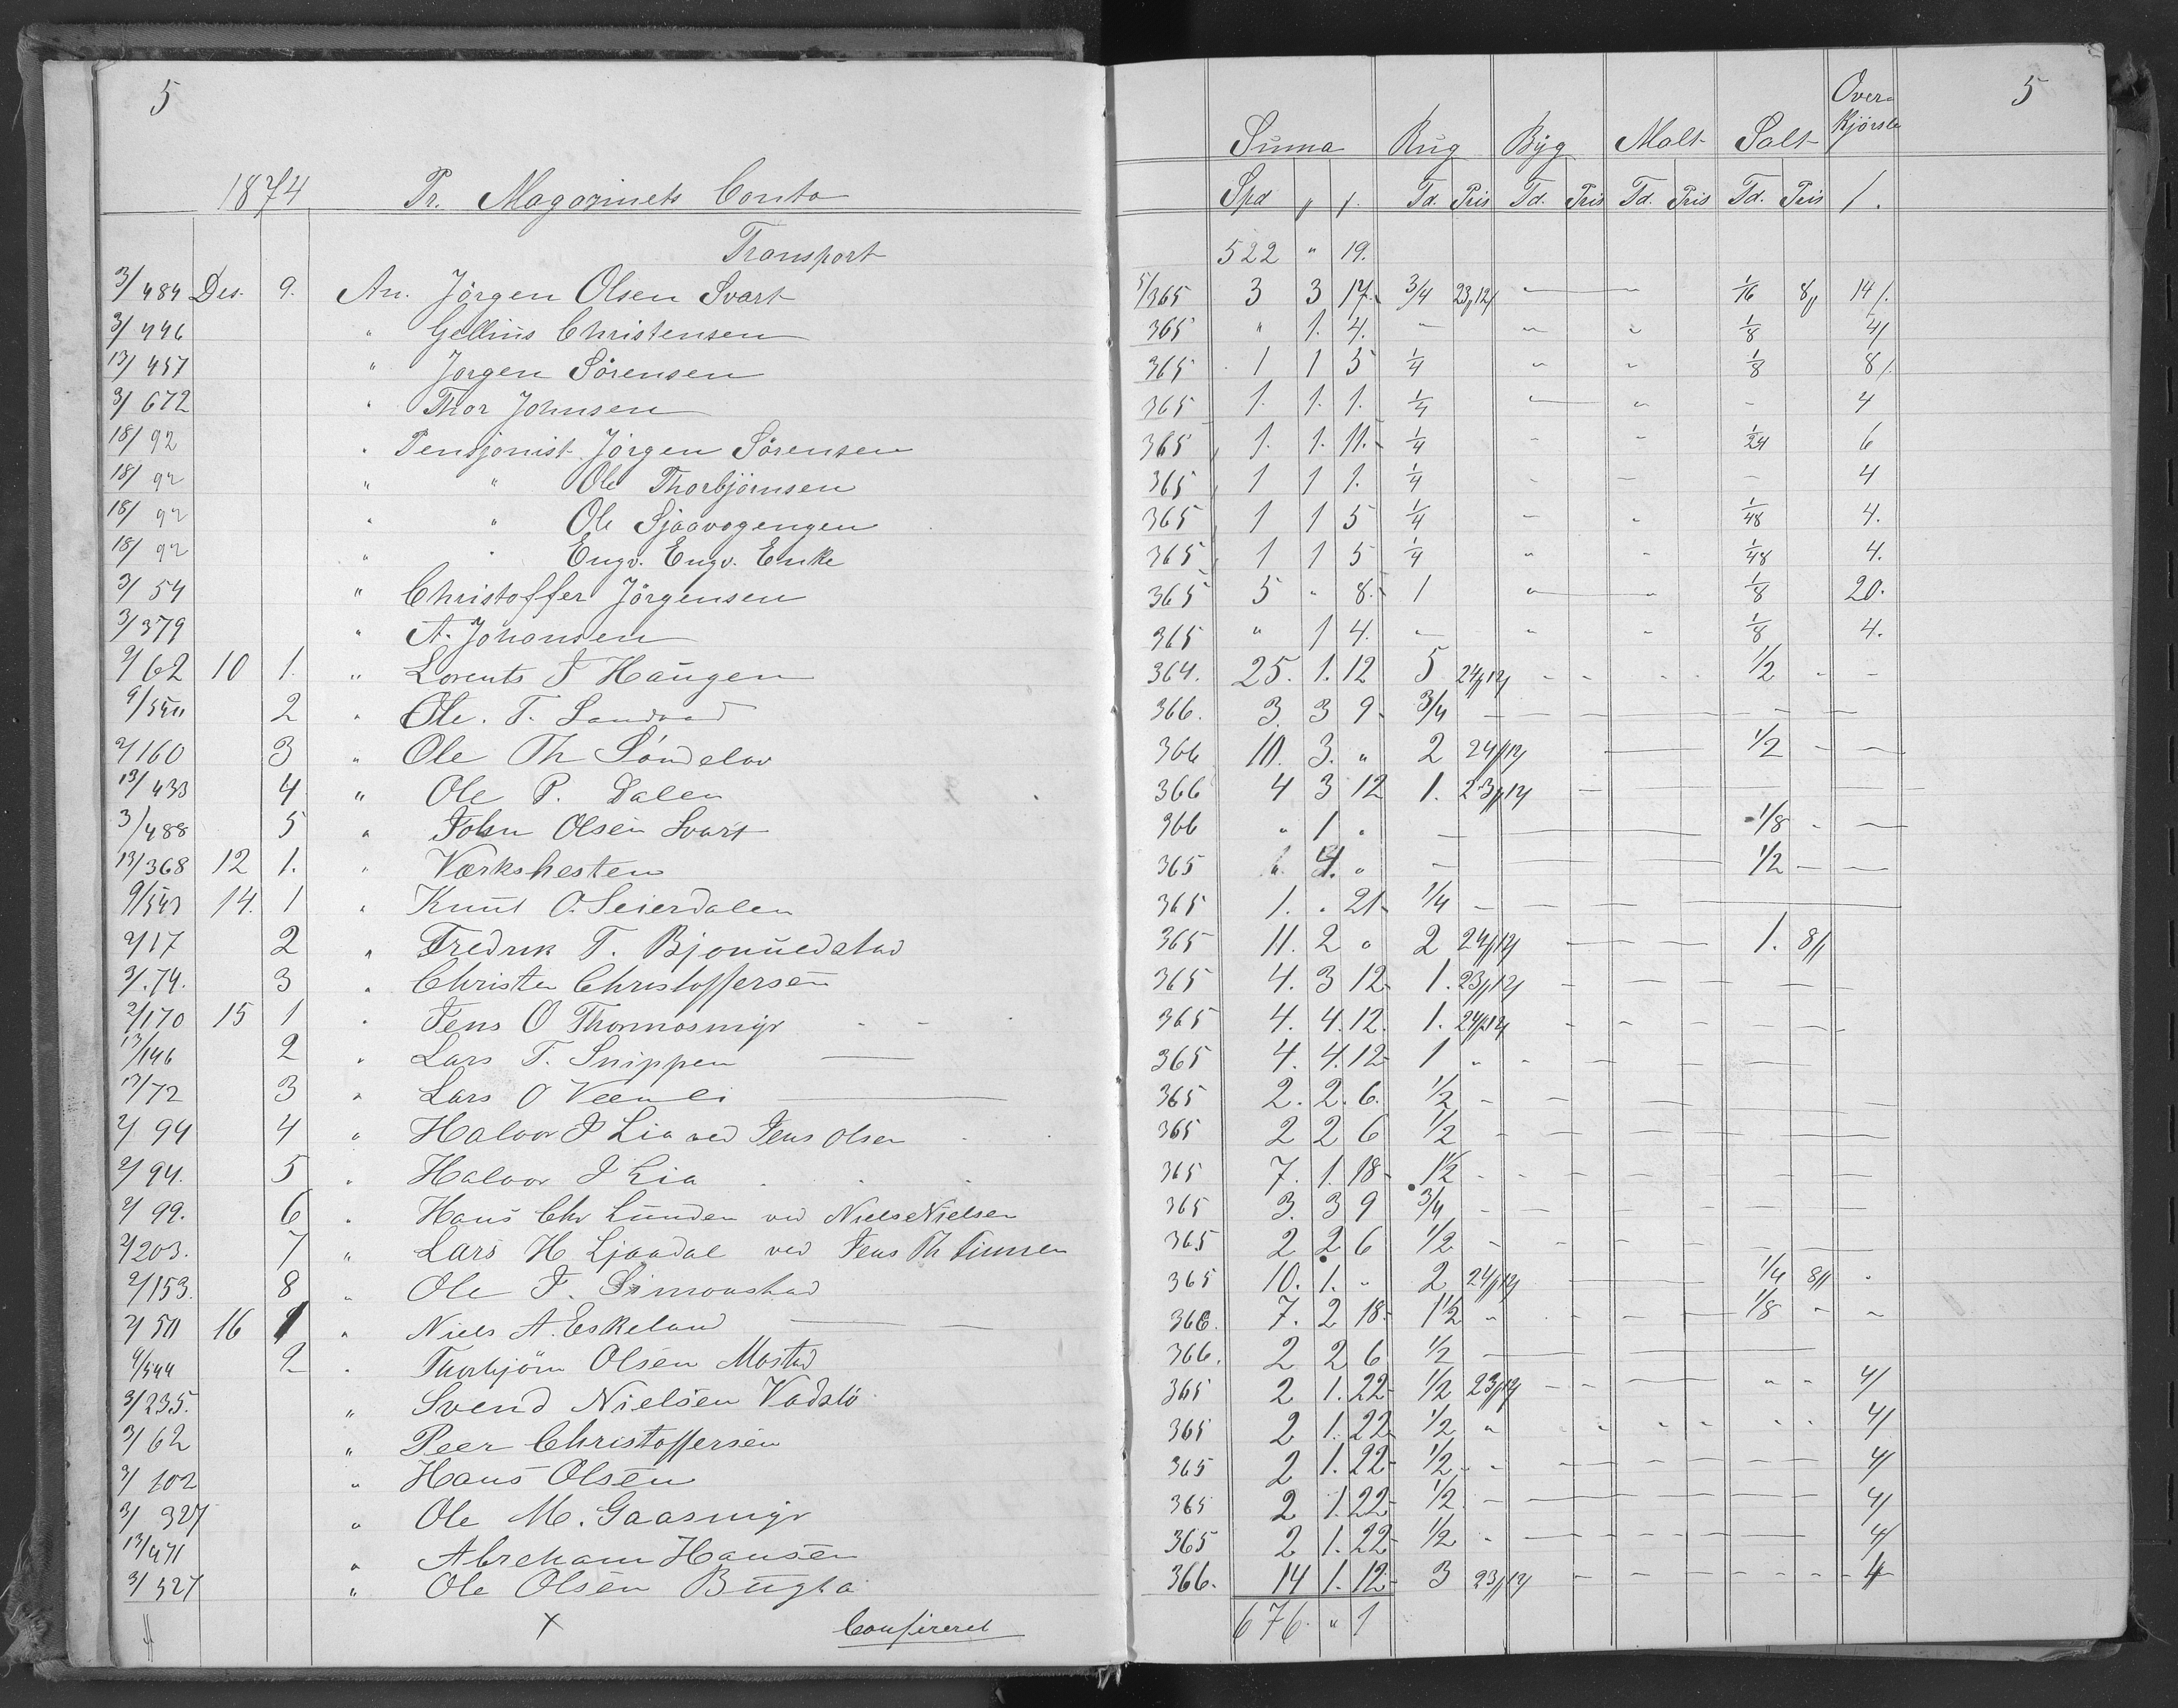 5
1874 Pr. Magazinets Conto
Transport
3/484 Des. 9. An. Jörgen Olsen Svart
3/446 " Gellius Christensen
13/457 " Jörgen Sörensen
3/672 " Thor Johnsen
18/92 " Pensjonist Jörgen Sörensen
18/92 " " Ole Thorbjörnsen
18/92 " " Ole Sjaavogengen
18/92 " " Engv. Engv. Enke
3/54 " Christoffer Jörgensen
3/379 " A. Johansen
2/62 10 1. " Lorents J Haugen
2 " Ole. T. Sandvad
2/160 3 " Ole Th Söndelav
13/433 4 " Ole P. Dalen
3/488 5 " John Olsen Svart
13/368 12 1. " Værkshesten
9/543 14. 1 " Knut O. Seierdalen
2/17 2 " Fredrik T.
3/74. 3 " Christen Christoffersen
2/170 15 1 " Jens O Thormosmyr
13/146 2 " Lars T. Snippen
13/72 3 " Lars O
2/94 4 " Halvor J Lia ved Jens Olsen
2/94. 5 " Halvor J Lia
2/99. 6 " Hans Chr Lunden ved Niels Nielsen
2/203. 7 " Lars H. Ljaadal ved Jens Th
2/153. 8 " Ole J. Simonstad
2/50 16 1 " Niels A. Eskeland
9/544 2 " Thorbjörn Olsen Mostad
3/235. " Svend Nielsen Vadslö
3/62 " Peer Christoffersen
3/102 " Hans Olsen
3/327 " Ole M. Gaasmyr
13/471 " Abreham Hansen
3/527 " Ole Olsen Bugta
x Confireret
5
Over-
Summa Rug Byg Malt Salt Kjörsle
Spd " /. Td. Pris Td. Pris Td. Pris Td. Pris /.
522 " 19.
5/365 3 3 17. 3/4 23,12/ " " 1/16 8,, 14/.
365 " 1. 4. " " " 1/8 4/
365 1 1 5 1/4 " " 1/8 8/.
365 1. 1. 1. 1/4 " " - 4
365 1. 1. 11. 1/4 " " 1/24 6
365 1 1 1. 1/4 - - - 4
365 1 1 5 1/4 - " 1/48 4.
365 1 1 5 1/4 " " 1/48 4.
365 5 " 8. 1 " " 1/8 20.
365 " 1 4. " " " 1/8 4.
364. 25. 1. 12 5 24,,12/ - - - - 1/2 - -
366. 3 3 9 3/4 - - - - - - -
366 10. 3. " 2 24,,12/ - 1/2 - -
366 4 3 12 1. 23,,12/ - - - -
366 " 1 " - - 1/8 - -
365 " 4. " - - 1/2 - -
365 1. " 21 1/4 - - - -
365 11. 2 " 2 24,,12/ - - - 1. 8,,
365 4. 3 12 1. 23,,12/ - - - - - -
365 4. 4. 12. 1. 24,,12/ - - - - - -
365 4. 4. 12 1 " - - - -
365 2. 2. 6. 1/2 - - - - -
365 2 2 6 1/2 - - - - -
365 7. 1. 18 1 1/2 - - - - - -
365 3. 3 9 3/4 - - - - - -
365 2 2 6 1/2 - - - - -
365 10. 1. " 2 24,,12/ - 1/4 8,, "
366. 7. 2 18 1 1/2 " - - - 1/8 - -
366. 2 2 6 1/2 - - - -
365 2 1. 22 1/2 23,,12/ - - - " " 4/
365 2 1. 22 1/2 " " " " " " 4/
365 2 1. 22 1/2 - - - - - - 4/
365 2 1. 22 1/2 - - - - - - 4/
365 2 1. 22 1/2 - - - - - - 4/
366. 14 1. 12 3 23,,12/ - - - - - - 4
676. " 1